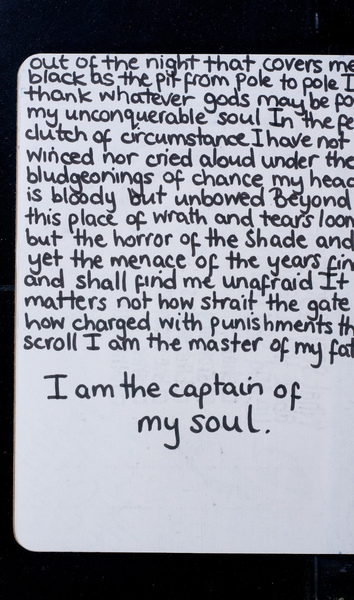 out of the night that covers me
black as the pit from pole to pole I
thank whatever gods may be fo
my unconquerable soul In the fe
clutch of circumstance I have not
winced nor cried aloud under the
bludgeonings of chance my head
is bloody but unbowed Beyond
this place of wrath and tears loom
but the horror of the Shade and
yet the menace of the years fin
and shall find me unafraid It
matters not how strait the gate
how charged with punishments th
scroll I am the master of my fat
I am the captain of
my soul.